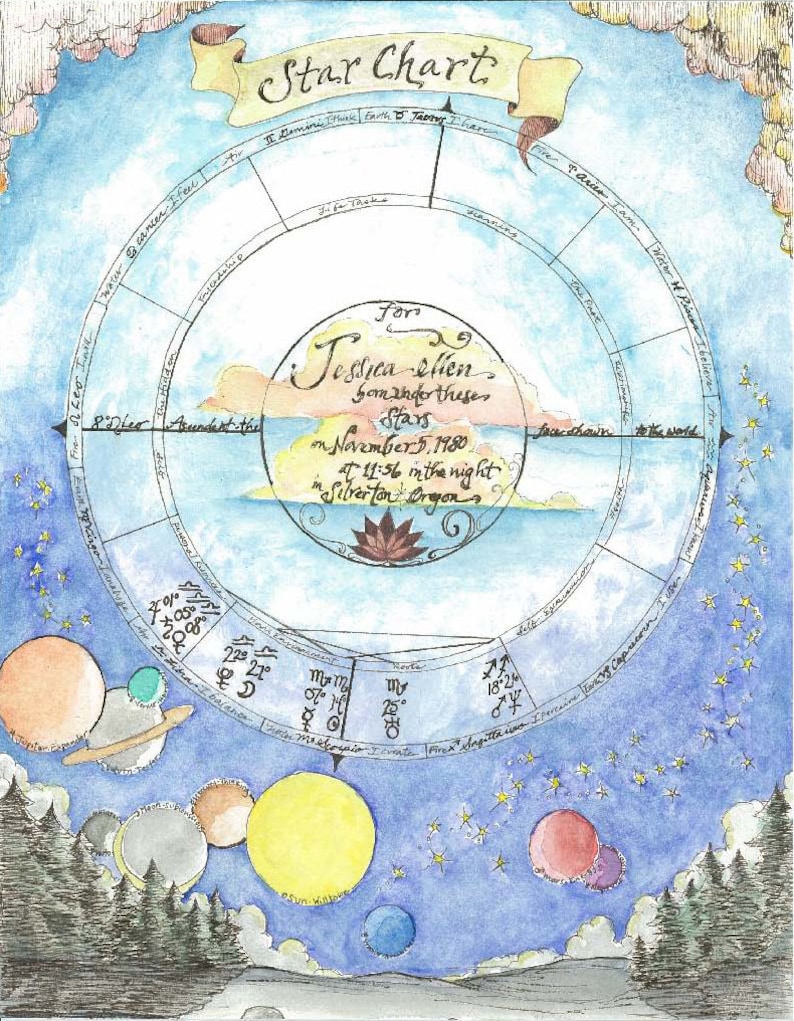 Star Chart
II Gemini I think
Earth ♉ Taurus I have
Air
Fire ♈ Aries I am
Water ♋ Cancer I feel
Water ♓ Pisces I believe
Life Tasks
Learning
Friendship
The Past
The Hidden
Fire ♌ Leo I
Air ♒ Aquarius I
for
Jessica Ellen
born under these
Stars
on November 5, 1980
at 11:56 in the night
in Silverton Oregon
8° ♌ Leo
Ascendent the
face shown
to the world
Self Expression
Home Environment
Roots
♃ 01° ♎
♄ 05° ♎
♀ 08° ♎
♎ ♎
22° 21°
♏ ♏
07°
♏
25°
♐ ♐
18° 21°
♂ ♆
Air ♎ Libra I balance
Water ♏ Scorpio I create
Fire ♐ Sagittarius I perceive
Earth ♑ Capricorn I use
Jupiter-Expand
Saturn
Moon-
Sun-Will